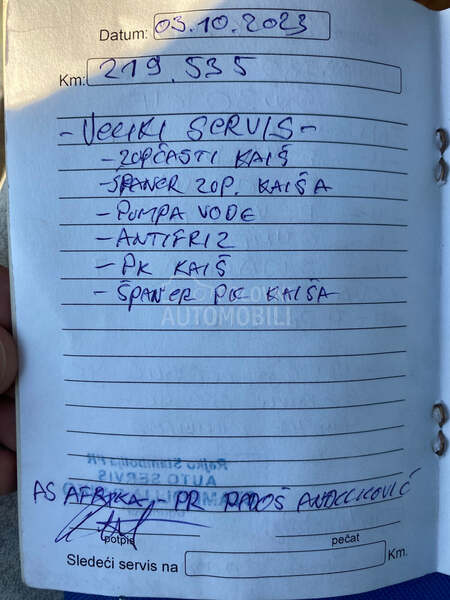 Datum: 03.10.2023
Km: 219.535
- VELIKI SERVIS -
- ZUPČASTI KAIŠ
- ŠPANER ZUP. KAIŠA
- PUMPA VODE
- ANTIFRIZ
- PK KAIŠ
- ŠPANER PK KAIŠA
POLOVNI
AUTOMOBILI
AUTO SERVIS
AS AFRIKA PR RADOŠ
potpis pečat
Sledeći servis na Km.